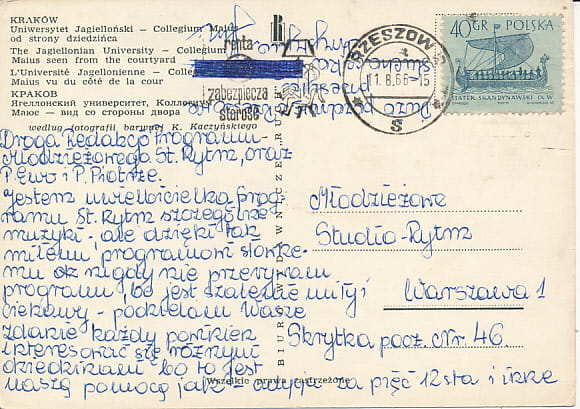 KRAKÓW
Uniwersytet Jagielloński — Collegium Maius
od strony dziedzińca
The Jagiellonian University — Collegium
Maius seen from the courtyard
L'Université Jagellonienne — Collegium
Maius vu du côté de la cour
КРАКОВ
Ягеллонский университет, Коллегиум
Маюс — вид со стороны двора
według fotografii barwnej K. Kaczyńskiego
renta
zabezpiecza
starość
RZESZÓW
11.8.66-15
S
40 GR POLSKA
STATEK SKANDYNAWSKI IX W
Dużo
Droga Redakcjo Programu
Młodzieżowego St. Rytm, oraz
P. Ewo i P. Piotrze.
Jestem uwielbicielką prog-
ramu St. Rytm szczególnie
muzyki - ale dzięki tak
miłemu programowi
nigdy nie przerywam
programu, bo jest szalenie miły i
ciekawy - podzielam Wasze
zdanie każdy powinien
interesować się różnymi
dziedzinami bo to jest
naszą pomocą jak - audycja za pięć 12sta i inne
BIURO WYDAWNICZE „RUCH"
Wszelkie prawa zastrzeżone
Młodzieżowe
Studio-Rytm
Warszawa 1
Skrytka pocz. Nr. 46.